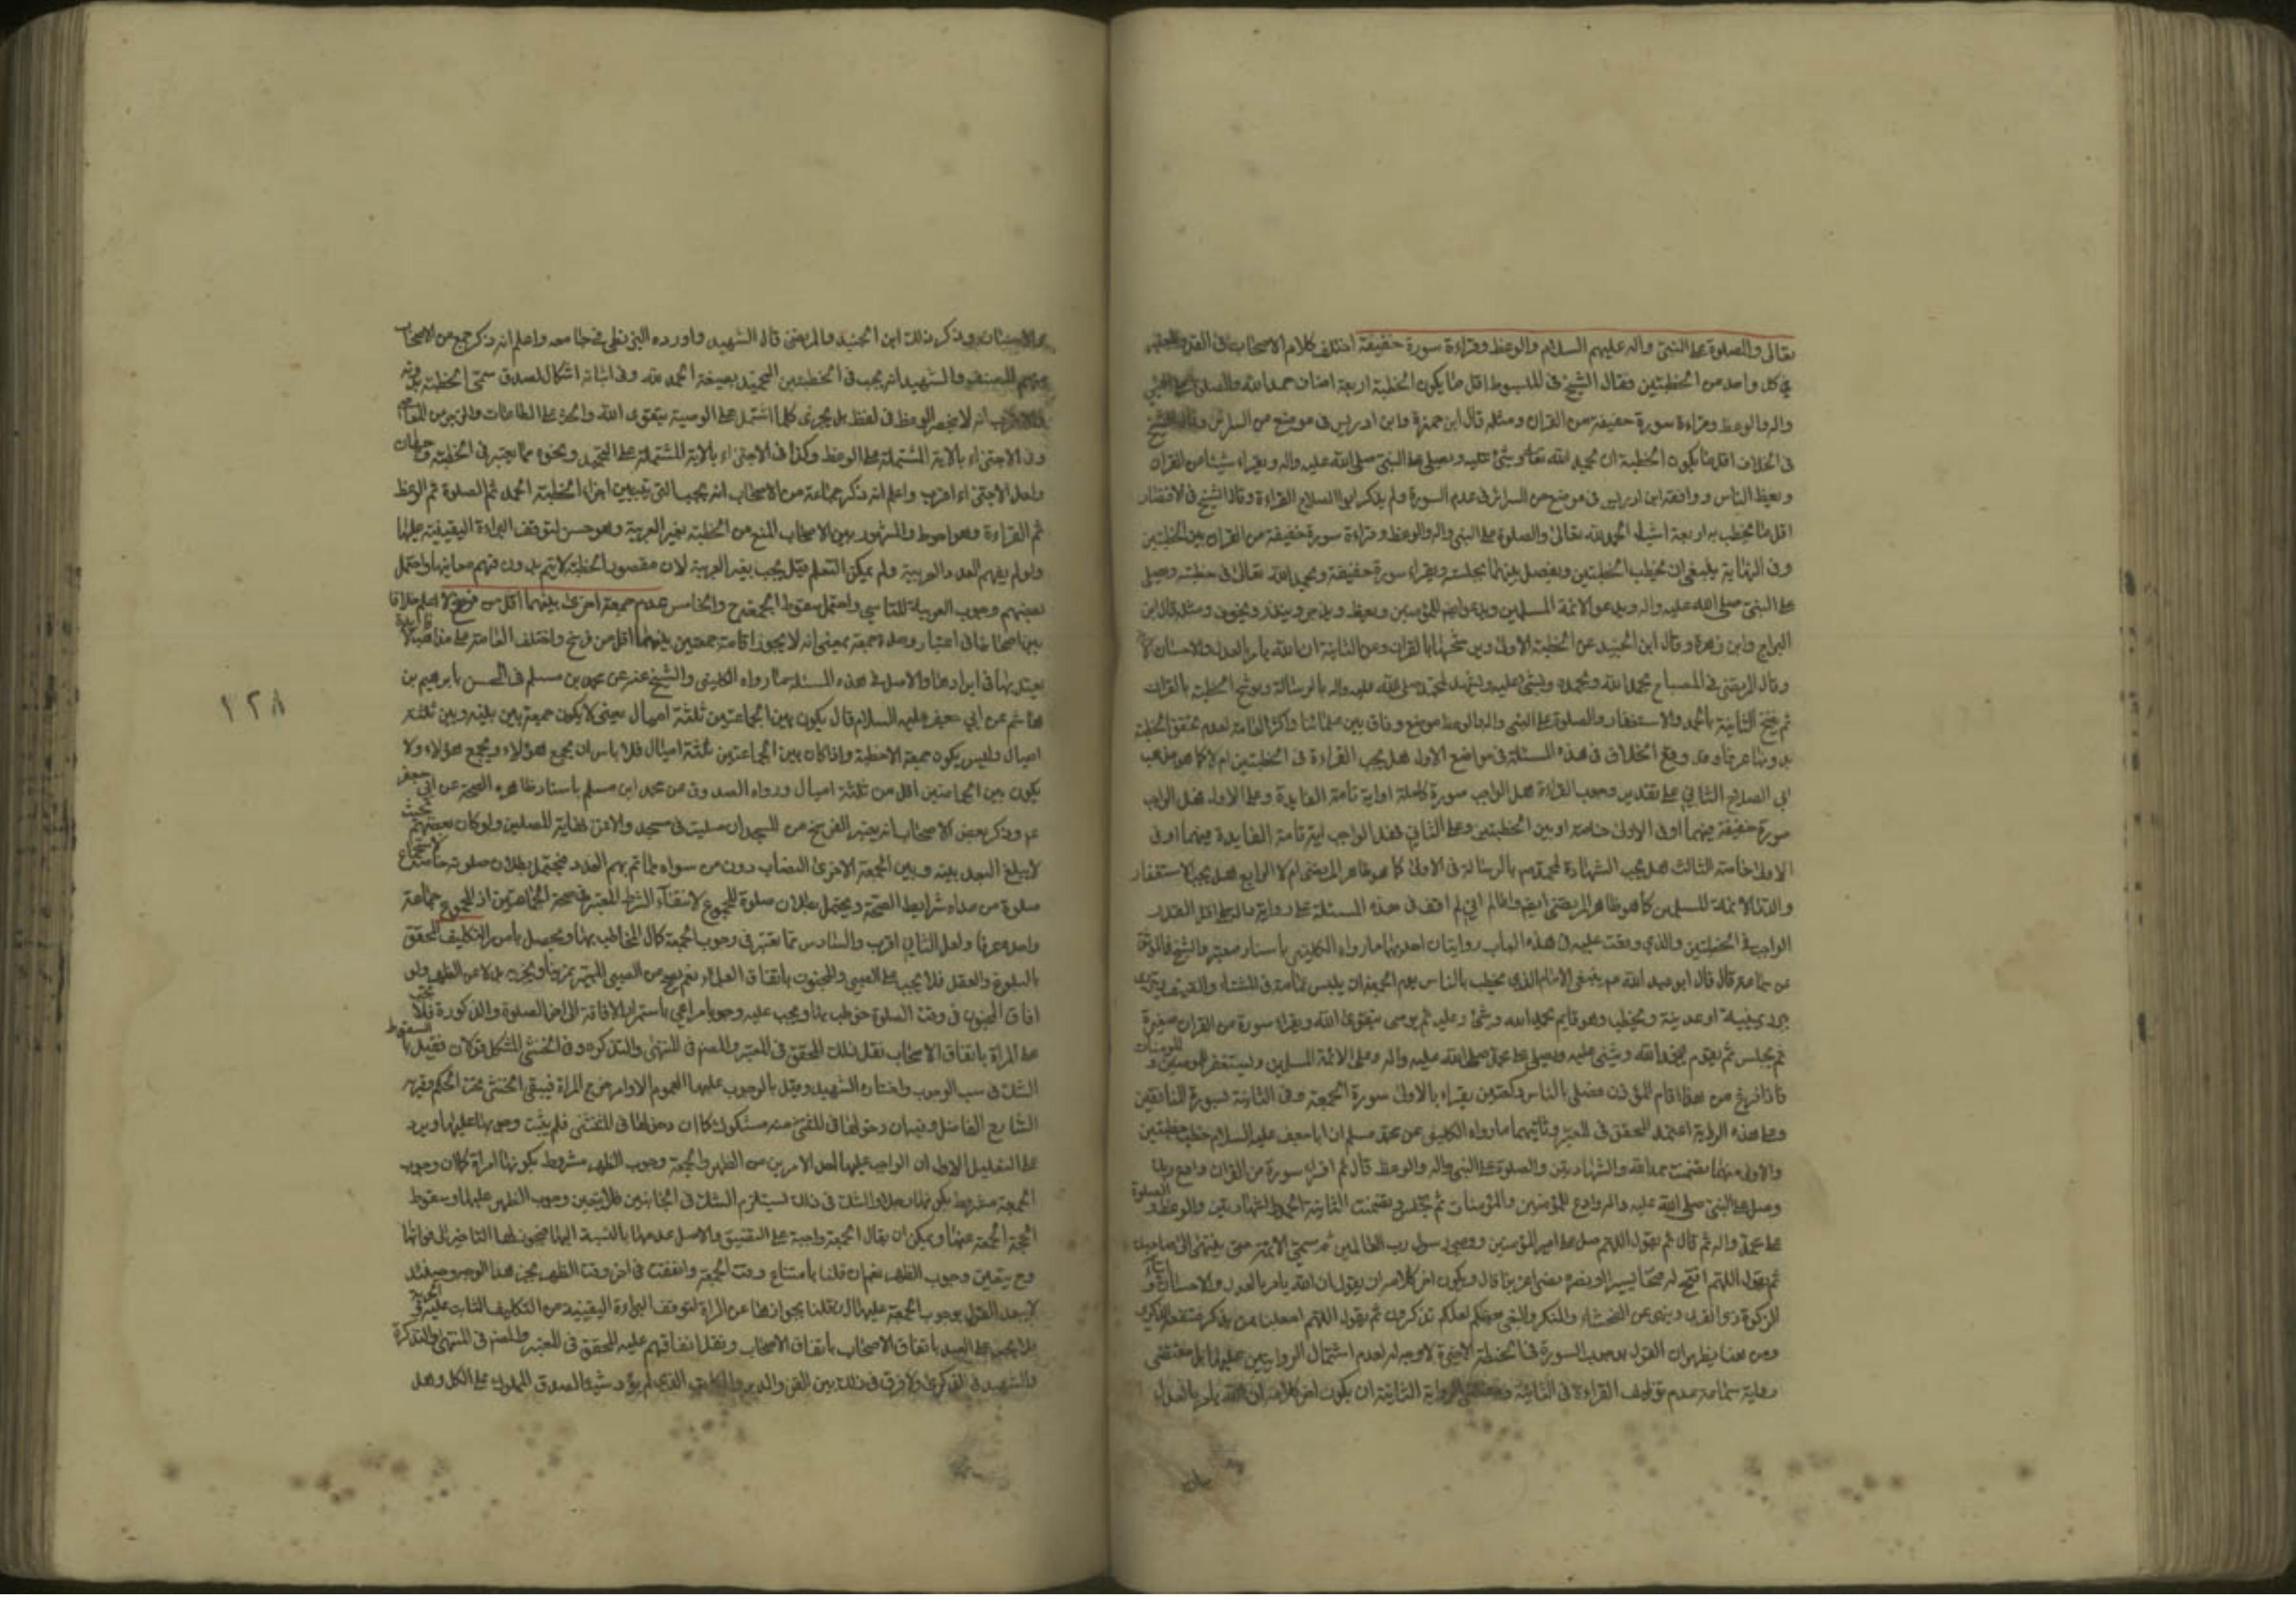 تعالى والصلوة على النبي واله عليهم السلام والوعظ وقراءة سورة خفيفة اختلف كلام الاصحاب في القدر المعتبر
في كل واحد من الخطبتين فقال الشيخ في المبسوط اقل ما يكون الخطبة اربعة اصناف حمد الله والصلوة على النبي
واله والوعظ وقراءة سورة خفيفة من القران ومثله قال ابن حمزة وابن ادريس في موضع من السرائر وقال الشيخ
في الخلاف اقل ما يكون الخطبة ان يحمد الله تعالى ويثني عليه ويصلي على النبي صلى الله عليه واله ويقراء شيئا من القران
ويعظ الناس ووافقه ابن ادريس في موضع من السرائر في عدم السورة ولم يذكر ابوا الصلاح القراءة وقال الشيخ في الاقتصار
اقل ما يخطب به اربعة اشياء الحمد لله تعالى والصلوة على النبي واله والوعظ وقراءة سورة خفيفة من القران بين الخطبتين
وفي النهاية ينبغي ان يخطب الخطبتين ويفصل بينهما بجلسة ويقراء سورة خفيفة ويحمد الله تعالى في خطبته ويصلي
على النبي صلى الله عليه واله ويدعو لائمة المسلمين ويدعو ايضا للمؤمنين ويعظ ويزجر وينذر ويخوف ومثله قال ابن
البراج وابن زهرة وقال ابن الجنيد عن الخطبة الاولى ويوشحها بالقران وعن الثانية ان الله يامر بالعدل والاحسان
وقال المرتضى في المصباح يحمد الله ويمجده ويثني عليه ويشهد لمحمد صلى الله عليه واله بالرسالة ويوشح الخطبة بالقران
ثم يفتتح الثانية بالحمد والاستغفار والصلوة على النبي واله والوعظ موضع وفاق بين علمائنا واكثر العامة لعدم تحقق الخطبة
بدونها عرفا وقد وقع الخلاف في هذه المسئلة في مواضع الاول هل يجب القراءة في الخطبتين ام لا كما هو مذهب
ابي الصلاح الثاني على تقدير وجوب القراءة هل الواجب سورة كاملة او اية تامة الفايدة وعلى الاول هل الواجب
سورة خفيفة فيهما او في الاولى خاصة او بين الخطبتين وعلى الثاني فهل الواجب اية تامة الفايدة فيهما او في
الاولى خاصة الثالث هل يجب الشهادة لمحمد صم بالرسالة في الاولى كما هو ظاهر المرتضى ام لا الرابع هل يجب الاستغفار
والدعاء لائمة المسلمين كما هو ظاهر المرتضى ايضا واعلم اني لم اقف في هذه المسئلة على رواية دالة على اقل القدر
الواجب في الخطبتين والذي وقفت عليه في هذا الباب روايتان احديهما ما رواه الكليني باسناد معتبر والشيخ في الموثق
عن سماعة قال قال ابو عبد الله عم ينبغي للامام الذي يخطب بالناس يوم الجمعة ان يلبس عمامة في الشتاء والصيف ويتردى
ببرد يمنية او عدنية ويخطب وهو قايم يحمد الله ويثني عليه ثم يوصي بتقوى الله ويقراء سورة من القران صغيرة
ثم يجلس ثم يقوم فيحمد الله ويثني عليه ويصلي على محمد صلى الله عليه واله وعلى ائمة المسلمين ويستغفر للمؤمنين والمؤمنات
فاذا فرغ من هذا اقام المؤذن فصلى بالناس ركعتين يقراء بالاولى سورة الجمعة وفي الثانية بسورة المنافقين
وعلى هذه الرواية اعتمد المحقق في المعتبر وثانيهما ما رواه الكليني عن محمد بن مسلم ان ابا جعفر عليه السلام خطب خطبتين
والاولى منهما تضمنت حمد الله والشهادتين والصلوة على النبي واله والوعظ قال ثم اقراء سورة من القران وادع ربك
وصل على النبي صلى الله عليه واله وادع للمؤمنين والمؤمنات ثم تجلس وتضمنت الثانية الحمد والشهادتين والوعظ والصلوة
على محمد واله ثم قال ثم يقول اللهم صل على امير المؤمنين ووصي رسول رب العالمين ثم سمى الائمة حتى ينتهي الى صاحبك
ثم يقول اللهم افتح له فتحا يسيرا وانصره نصرا عزيزا قال ويكون اخر كلامه ان يقول ان الله يامر بالعدل والاحسان وايتاء
ذي القربى وينهى عن الفحشاء والمنكر والبغي يعظكم لعلكم تذكرون ثم يقول اللهم اجعلنا ممن يذكر فتنفعه الذكرى
ومن هنا يظهر ان القول بوجوب السورة في الخطبة الاخيرة لا وجه له لعدم اشتمال الروايتين عليها بل مقتضى
رواية سماعة عدم توظيف القراءة في الثانية ومقتضى الرواية الثانية ان يكون اخر كلامه ان الله يامر بالعدل
والاحسان وذكر ذلك ابن الجنيد والمرتضى قال الشهيد واورده البزنطي في جامعه واعلم انه ذكر جمع من الاصحاب
منهم المصنف والشهيد انه يجب في الخطبتين التحميد بصيغة الحمد لله وفي اثباته اشكال لصدق مسمى الخطبة بدونه
والاقرب انه لا ينحصر الوعظ في لفظ بل يجزي كلما اشتمل على الوصية بتقوى الله والحث على الطاعات والزجر عن المعاصي
وفي الاجتزاء بالاية المشتملة على الوعظ وكذا في الاجتزاء بالاية المشتملة على التحميد ونحوه مما يعتبر في الخطبة وجهان
ولعل الاجتزاء اقرب واعلم انه ذكر جماعة من الاصحاب انه يجب الترتيب بين اجزاء الخطبة الحمد ثم الصلوة ثم الوعظ
ثم القراءة وهو احوط والمشهور بين الاصحاب المنع من الخطبة بغير العربية وهو حسن لتوقف البراءة اليقينية عليها
ولو لم يفهم العدد العربية ولم يمكن التعلم قيل يجب بغير العربية لان مقصود الخطبة لا يتم بدون فهم معانيها واحتمل
بعضهم وجوب العربية للتاسي واحتمل سقوط الجمعة ح والخامس عدم جمعة اخرى بينهما اقل من فرسخ لا اعلم خلافا
بين اصحابنا في اعتبار وحدة جمعة بمعنى انه لا يجوز اقامة جمعتين بينهما اقل من فرسخ واختلف العامة على مذاهب لا فايدة
يعتد بها في ايرادها والاصل في هذه المسئلة ما رواه الكليني والشيخ عنه عن محمد بن مسلم في الحسن بابرهيم بن
هاشم عن ابي جعفر عليه السلام قال يكون بين الجماعتين ثلثة اميال يعني لا يكون جمعة بين بينه وبين ثلثة
اميال وليس يكون جمعة الا بخطبة واذا كان بين الجماعتين ثلثة اميال فلا باس ان يجمع هؤلاء ويجمع هؤلاء ولا
يكون بين الجماعتين اقل من ثلثة اميال ورواه الصدوق عن محمد ابن مسلم باسناد ظاهره الصحة عن ابي جعفر
عم وذكر بعض الاصحاب انه يعتبر الفرسخ من المسجد ان صليت في مسجد والا فمن نهاية المصلين ولو كان بعضهم بحيث
لا يبلغ البعد بينه وبين الجمعة الاخرى النصاب دون من سواه مما تم بهم العدد فيحتمل بطلان صلوته خاصة لاستجماع
صلوة من عداه شرايط الصحة ويحتمل بطلان صلوة المجموع لانتفاء الشرط المعتبر في صحة الجماعتين اذ المجموع جماعة
واحدة عرفا ولعل الثاني اقرب والسادس مما يعتبر في وجوب الجمعة كمال المخاطب بها ويحصل بامور التكليف المحقق
بالبلوغ والعقل فلا يجب على الصبي والمجنون باتفاق العلماء نعم يصح من الصبي المميز تمرينا ويجزيه بدلا عن الظهر ولو
افاق المجنون في وقت الصلوة خوطب بها ويجب عليه وجوبا مراعي باستمرار الافاقة الى اخر الصلوة والذكورة فلا تجب
على المراة باتفاق الاصحاب نقل ذلك المحقق في المعتبر والمصنف في المنتهى والتذكرة وفي الخنثى المشكل قولان فقيل بالسقوط
للشك في سبب الوجوب واختاره الشهيد وقيل بالوجوب عليها لعموم الاوامر خرج المراة فيبقى الخنثى تحت الحكم وقربه
الشارح الفاضل وفيه ان دخولها في المستثنى منه مشكوك كما ان دخولها في المستثنى فلم يثبت وجوبها عليها ويرد
على التعليل الاول ان الواجب عليها احد الامرين من الظهر والجمعة ووجوب الظهر مشروط بكونها امراة كما ان وجوب
الجمعة مشروط بكونها رجلا والشك في ذلك يستلزم الشك في الجانبين فلا يتعين وجوب الظهر عليها وسقوط
الجمعة عنها ويمكن ان يقال الجمعة واجبة على التضييق والاصل عدمها بالنسبة اليها فيجوز لها التاخير الى فواتها
وح يتعين وجوب الظهر نعم ان قلنا بامتداد وقت الجمعة واتفقت في اخر وقت الظهر لم يجز هذا الوجه وحينئذ
لا يبعد القول بوجوب الجمعة عليها ان قلنا بجوازها عن المراة لتوقف البراءة اليقينية من التكليف الثابت عليه والحرية
فلا يجب على العبد باتفاق الاصحاب ونقل اتفاقهم عليه المحقق في المعتبر والمصنف في المنتهى والتذكرة
والشهيد في الذكرى ولا فرق في ذلك بين القن والمدبر والمكاتب الذي لم يؤد شيئا لصدق المملوك على الكل وهل
١٢٨